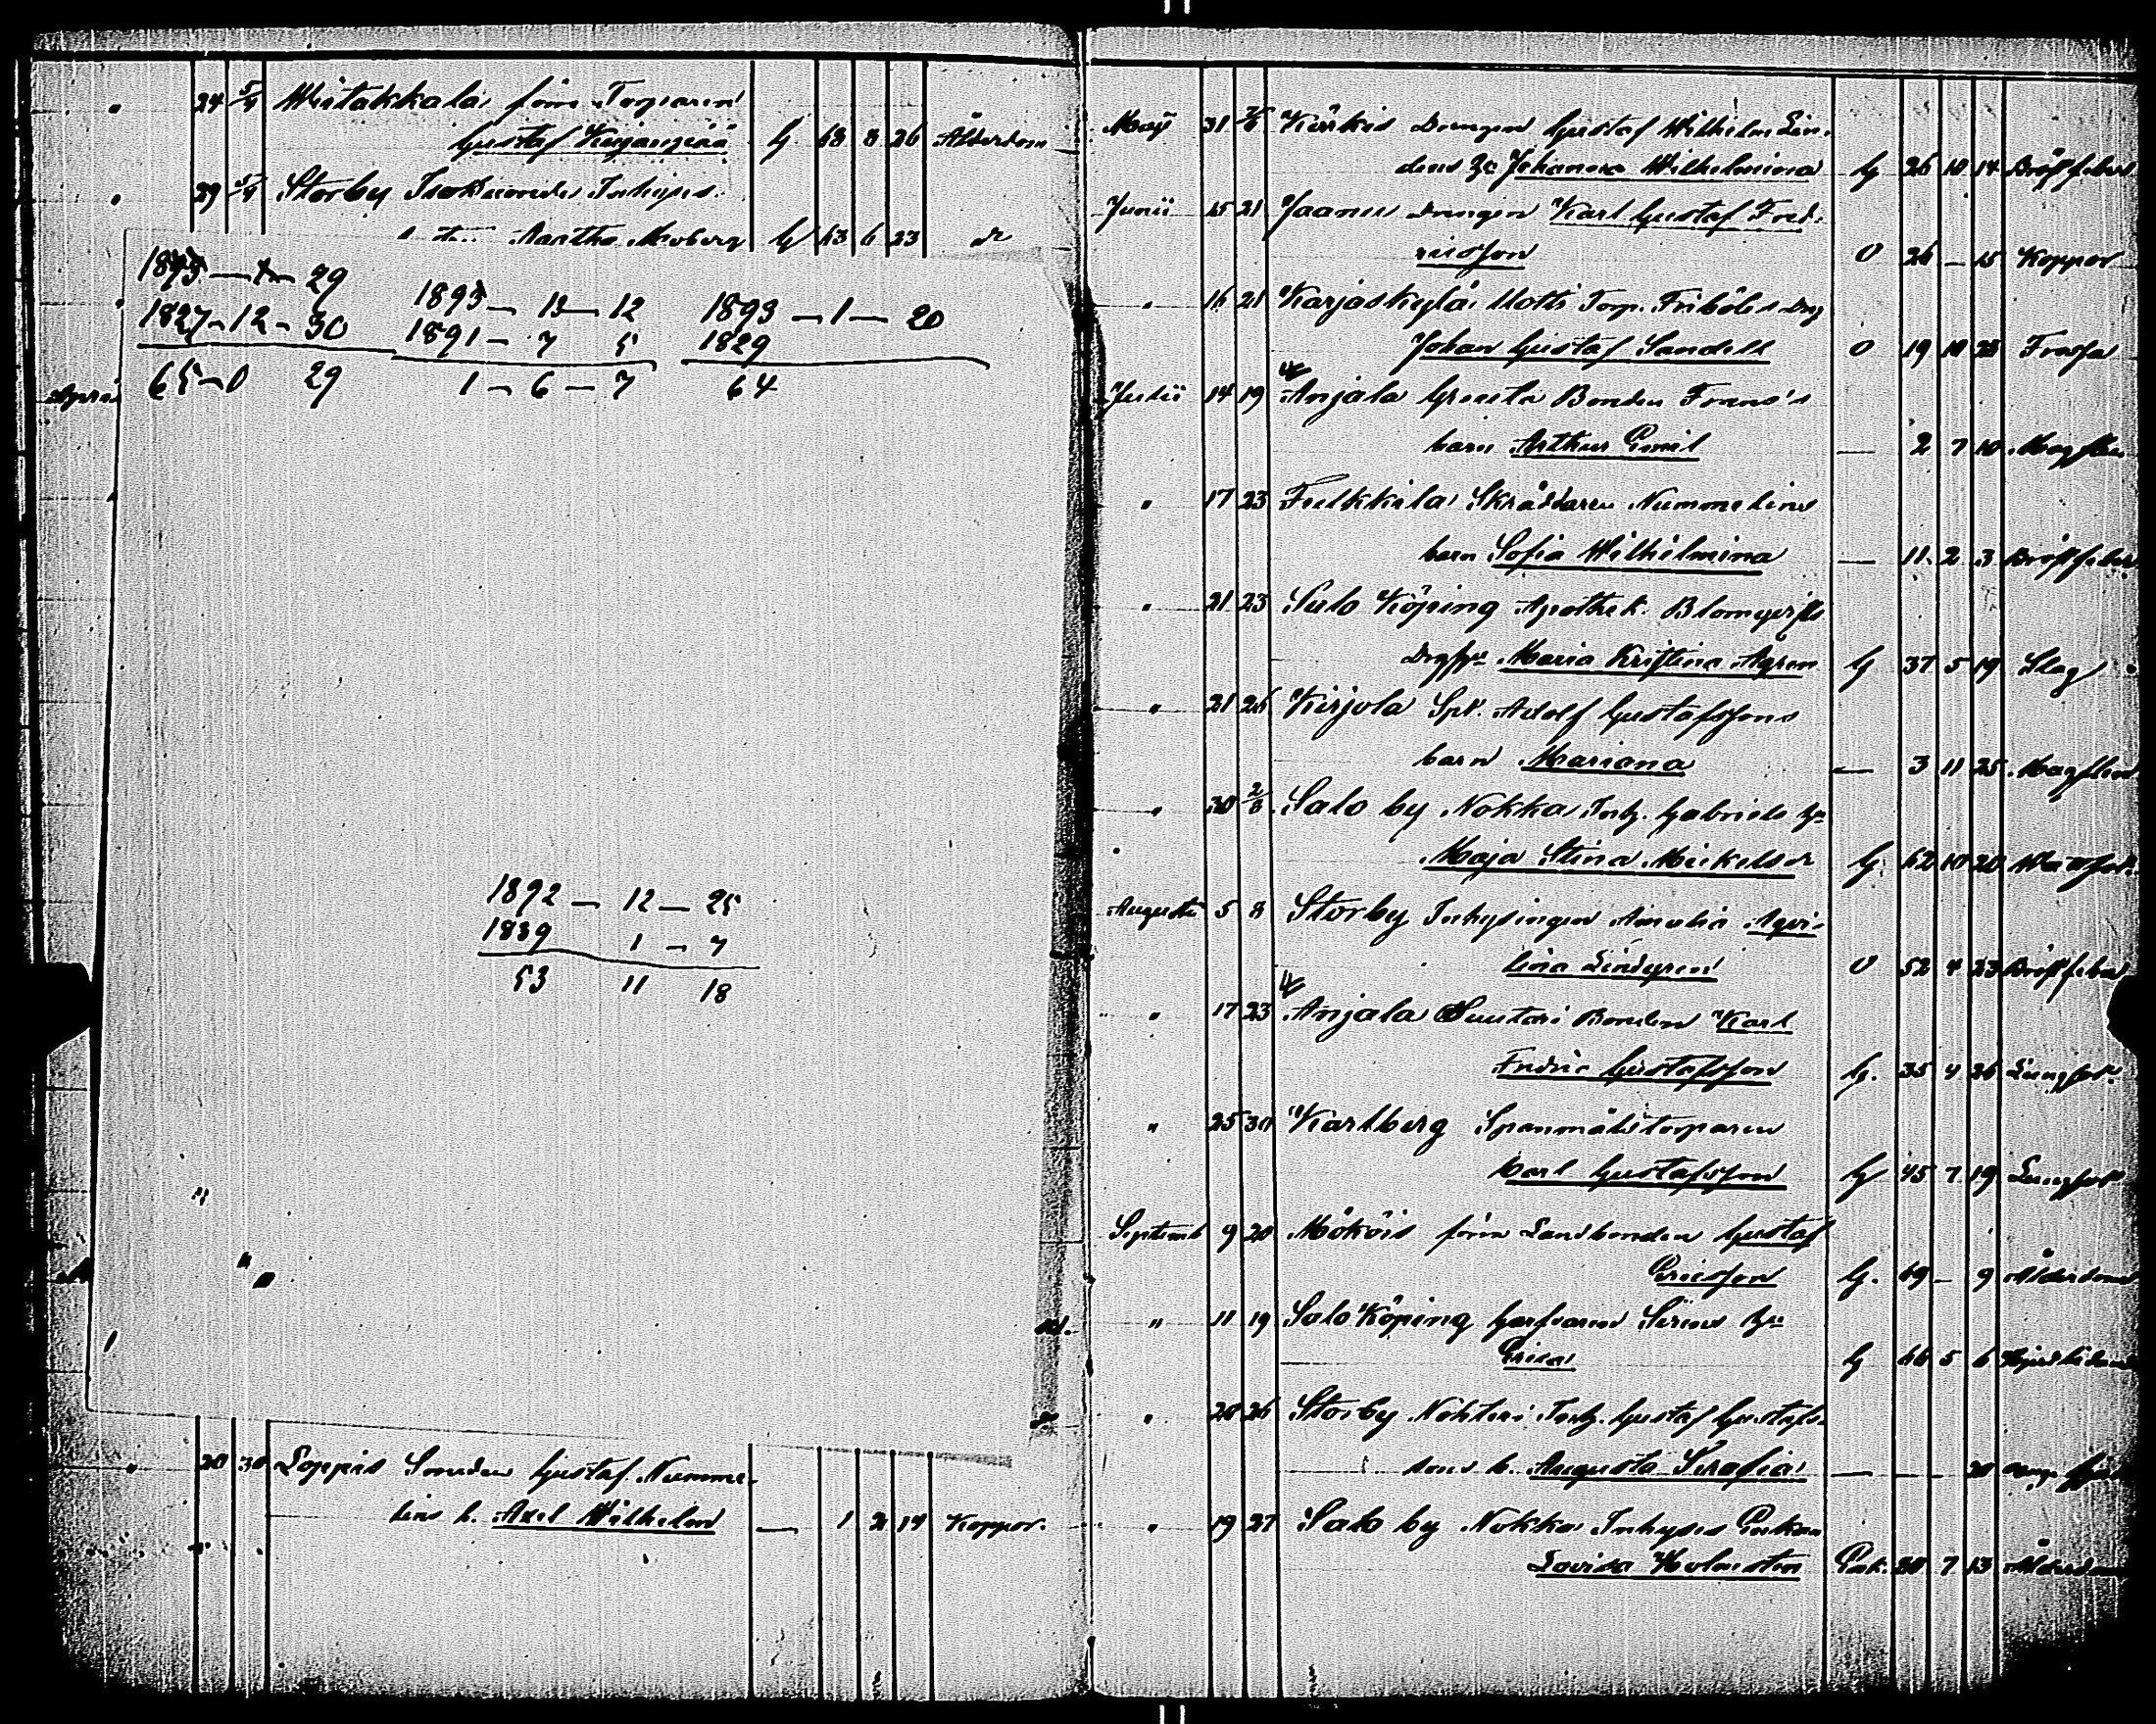 " 24 5/4 Wiitakkala förre Torparen
Gustaf Kujanpää G 68 8 26 Ålderdom
" 29 5/4 Storby Inhyses
Martha Moberg G 63 6 23 dr
1893 — 1 — 29
1827 - 12 - 30
65 - 0 29
1893 — 13 — 12
1891 — 7 5
1 — 6 — 7
1893 — 1 — 20
1829
64
April
1892 — 12 — 25
1839 1 — 7
53 11 18
" 20 30 Loppis Smeden Gustaf Numme-
lins b. Axel Wilhelm — 1 2 14 Koppor.
Maji 31 Kärkis Drengen Gustaf Wilhelm Lin-
dens Johanna Wilhelmina G 26 10 14 Bröstfeber
Junii 15 21 Jaanu Drengen Karl Gustaf Fred-
ricsson O 26 — 15 Koppor
" 16 21 Karjaskylä Uotti Torp. Friböles Dng
Johan Gustaf Sandell O 19 10 25 Frossa
Julii 14 19 Anjala Bonden Frans's
barn Arthur Emil — 2 7 10 Magflus
" 17 23 Fulkkila Skräddaren Nummelins
barn Sofia Wilhelmina — 11 2 3 Bröstfeber
" 21 23 Salo Köping Apothek. Blomqvists
Maria Kristina Agren G 37 5 19 Slag
" 21 26 Kirjola Spt. Adolf Gustafssons
barn Mariana — 3 11 25 Magflus
" 30 2/8 Salo by Nokka Inh. Gabriels
Maja Stina Mickelsdr G. 62 10 20 Wattsot
Augusti 5 8 Storby Inhysingen Amalia Aqvi-
lina Lindgren O 52 4 23 Bröstfeber
" 17 23 Anjala Suutari Bonden Karl
Fredric Gustafsson G. 35 4 26 Lungsot
" 25 30 Karlberg Spanmålstorparen
Carl Gustafsson G 45 7 19 Lungsot
Septemb 9 20 Mököis förra Landbonden Gustaf
Ericsson G. 69 — 9 Ålderdom
" 11 19 Salo Köping Garfvaren
Erica G 66 5 6
" 20 26 Storby Nohteri Inh. Gustaf Gustafs-
sons b. Augusta Serafia — — 20
" 19 27 Salo by Nokka Inhyses Enkan
Lovisa Holmsten Enk. 80 7 13 Ålderdom